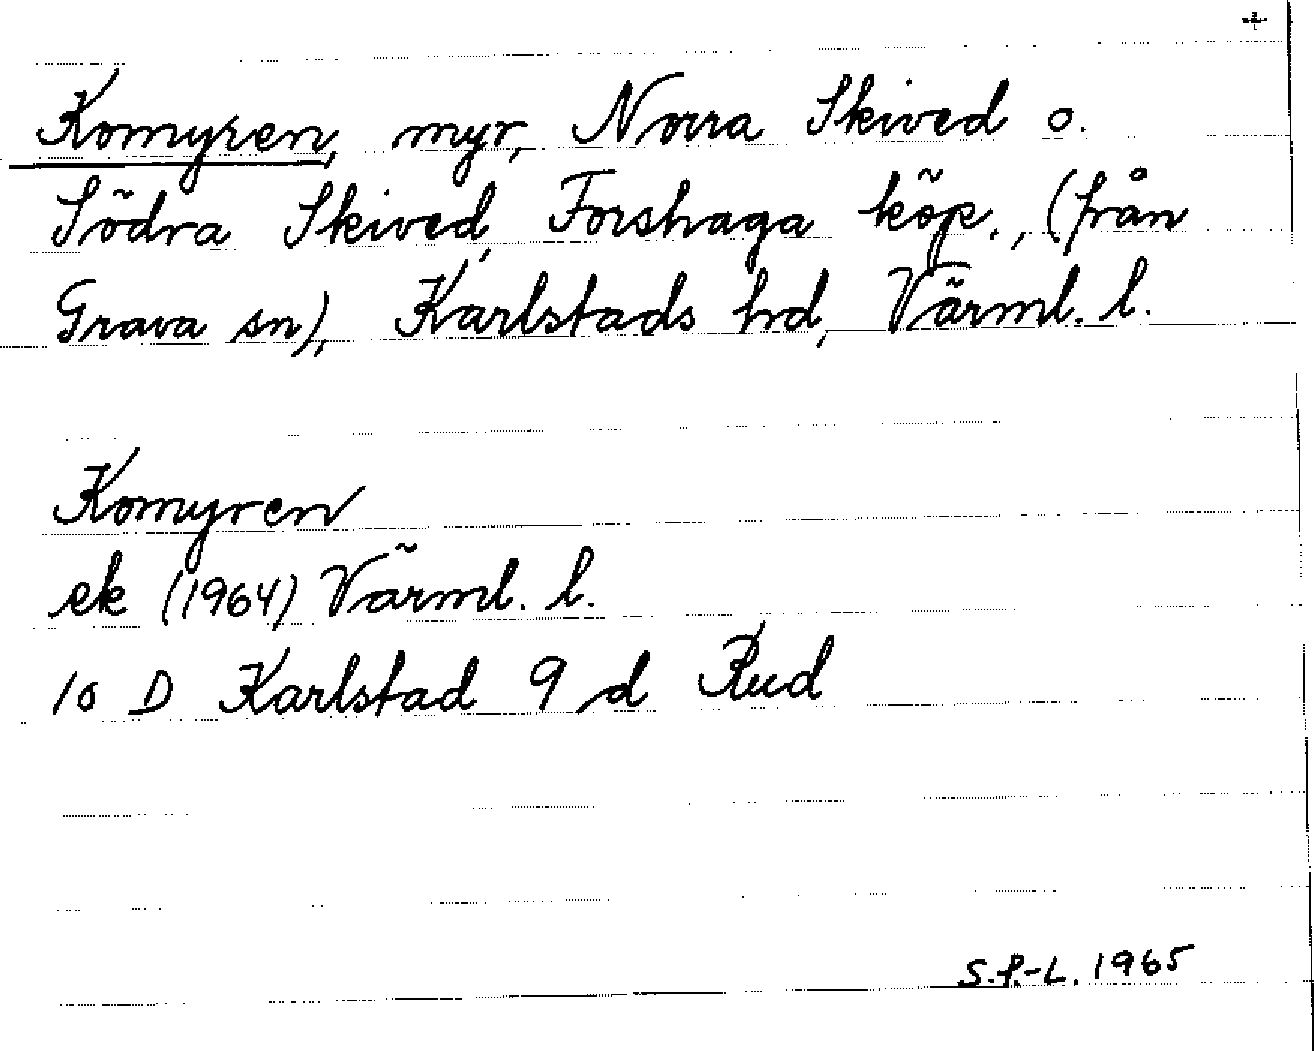 +
Komyren, myr, Norra Skived o.
Södra Skived, Forshaga köp., (från
Grava sn), Karlstads hd, Värml. l.
Komyren
ek (1964) Värml. l.
10 D Karlstad 9 d Rud
S.P.-L. 1965